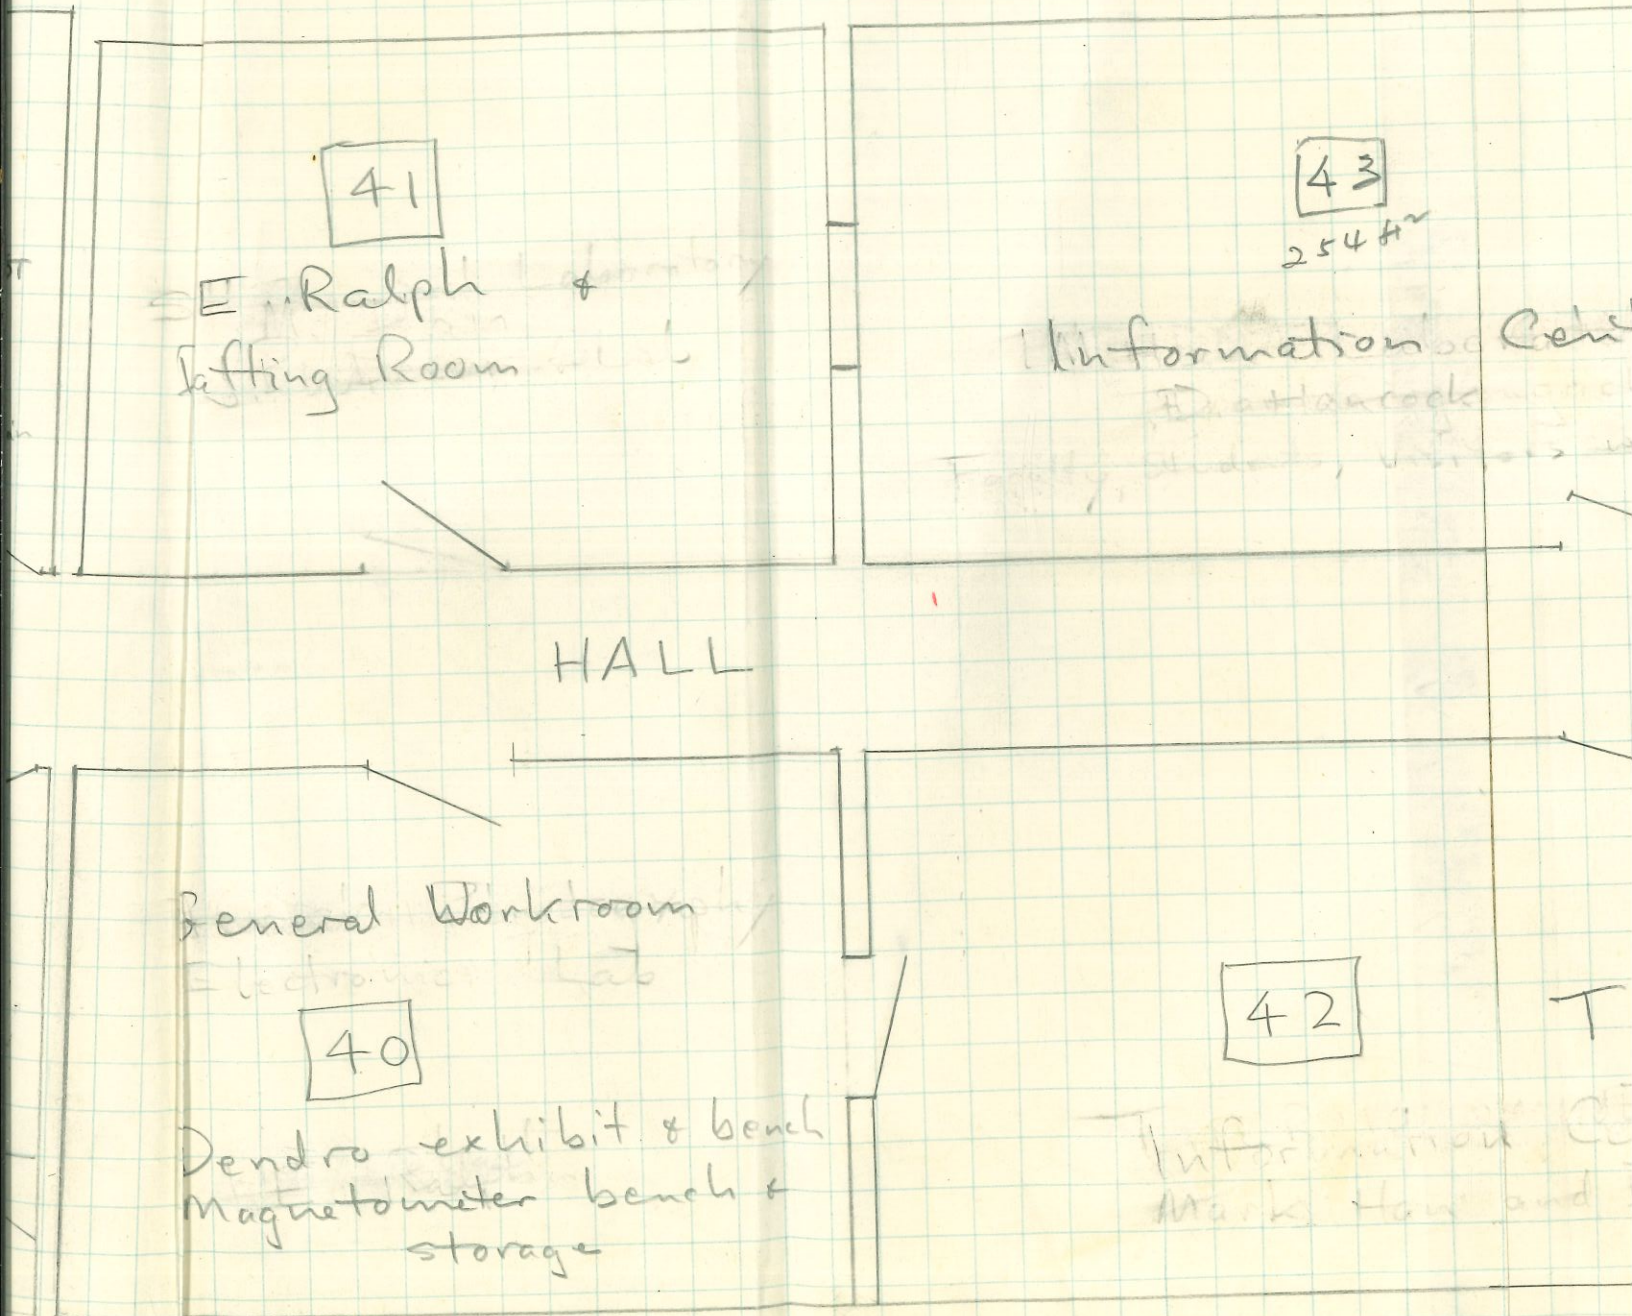 41
E. Ralph &
afting Room
43
254 ft²
Information Cen
HALL
General Workroom
Electronic Lab
40
Dendro exhibit & bench
Magnetometer bench &
storage
42
T
Information C
Mark Han and